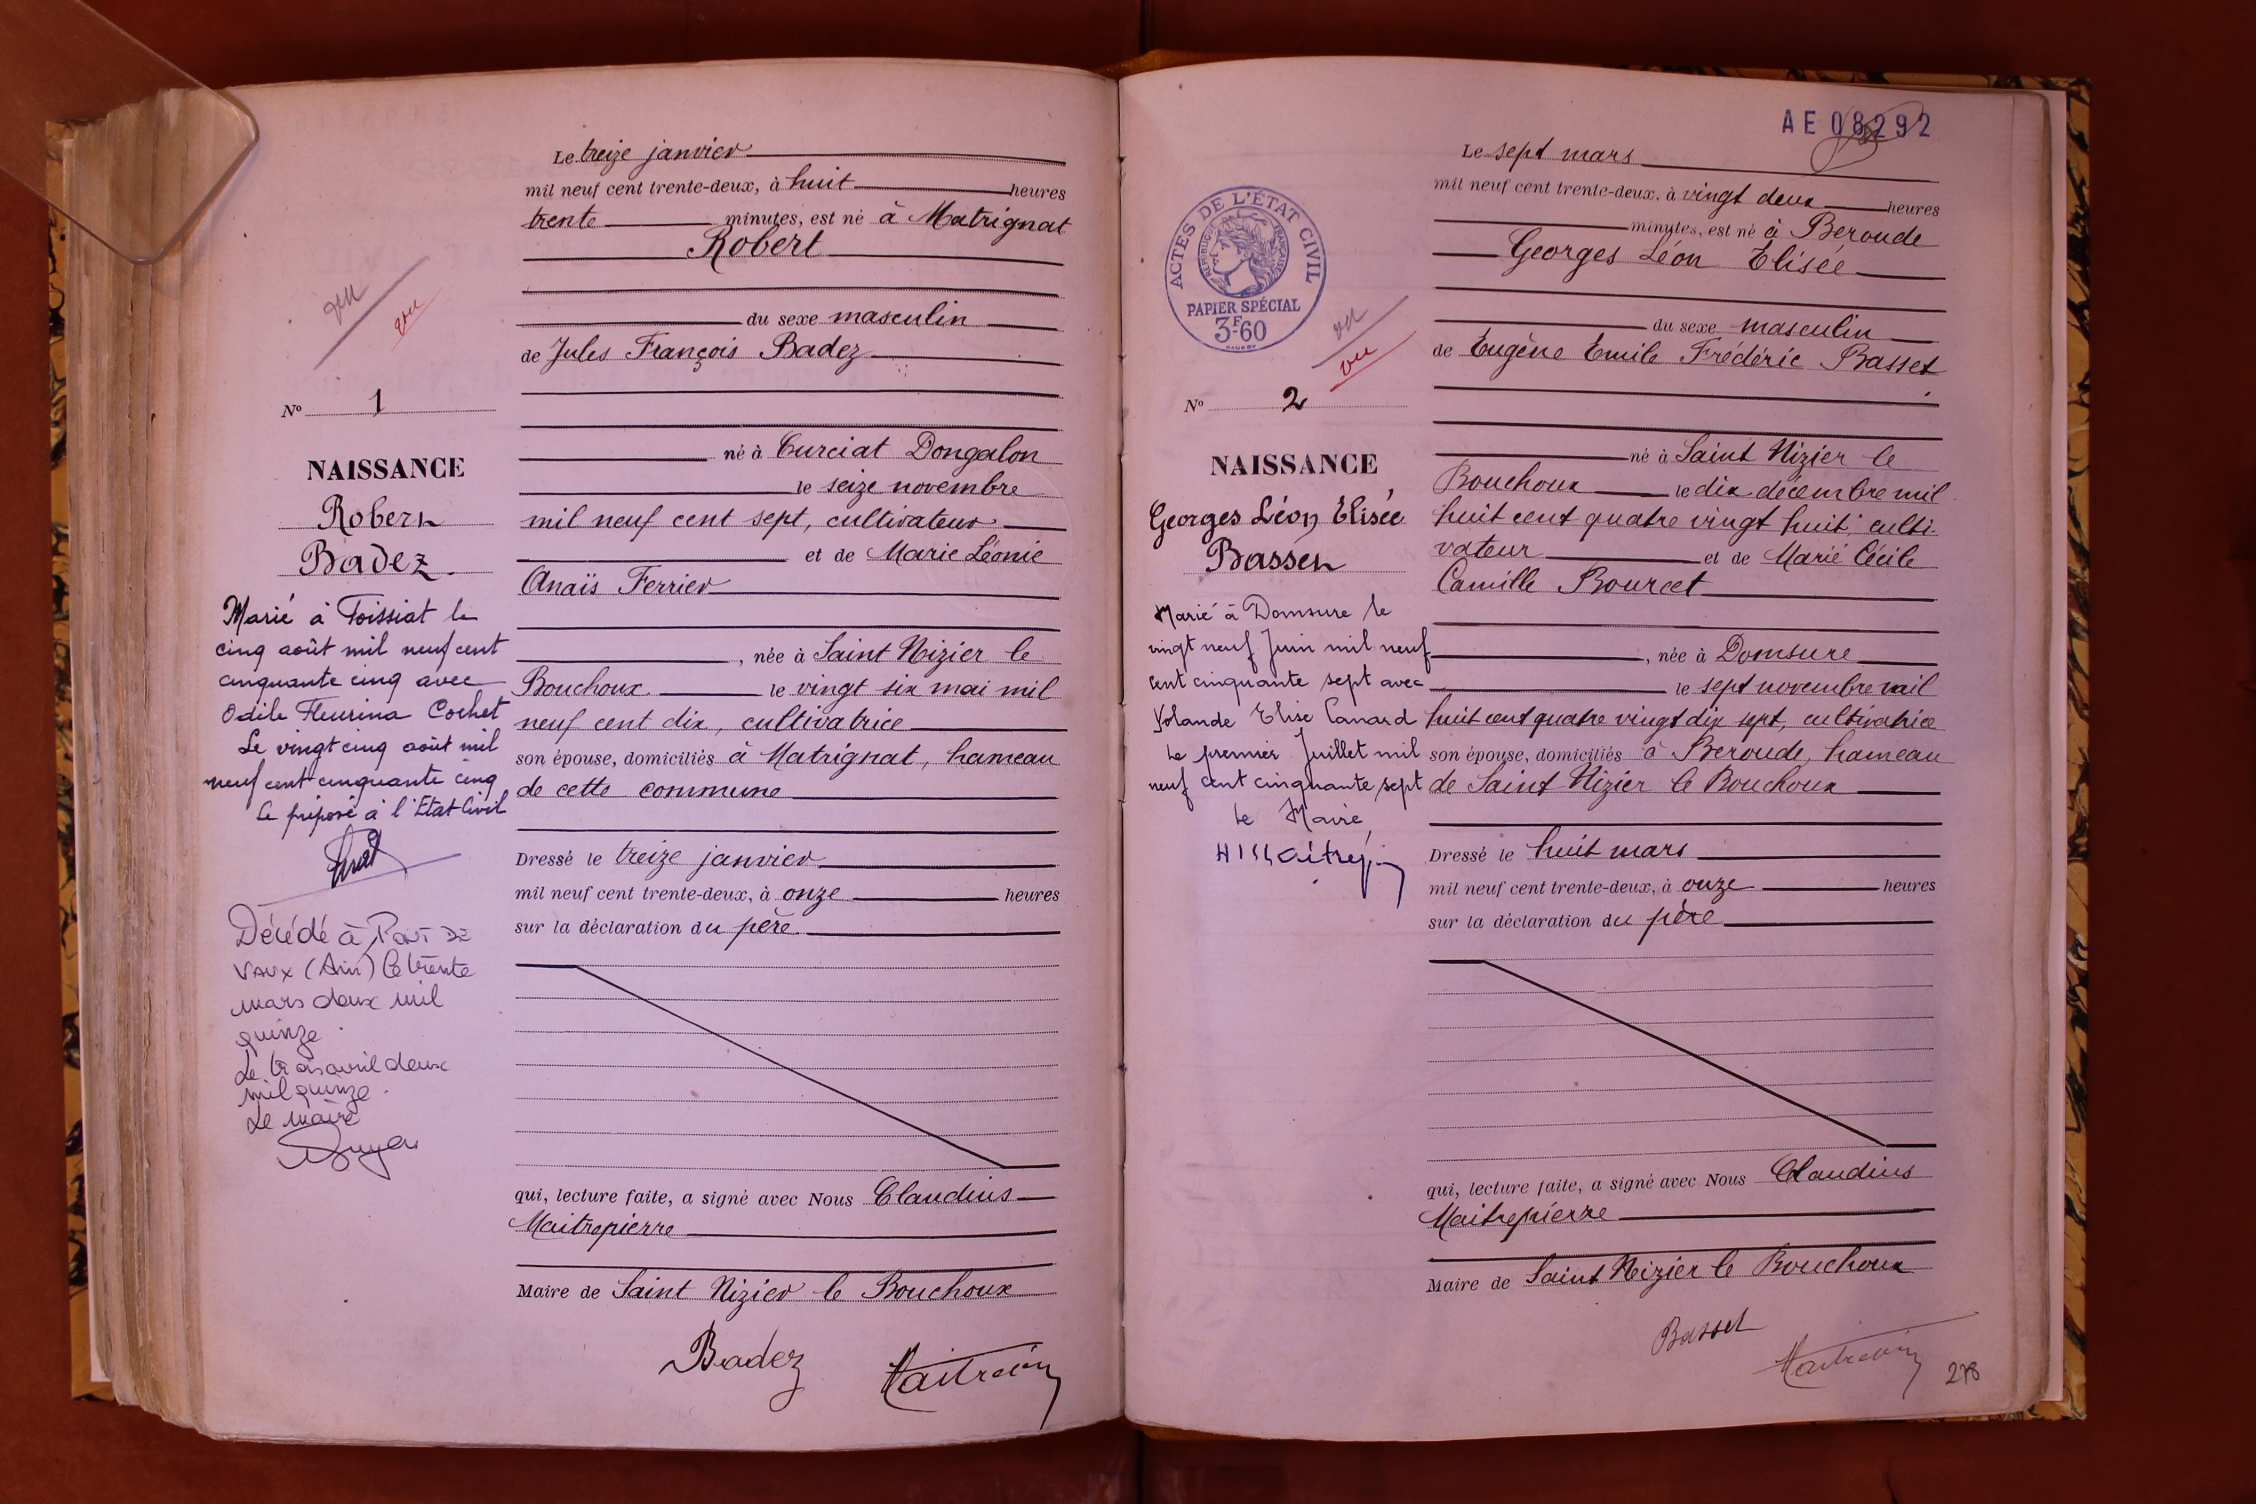 Le treize janvier
mil neuf cent trente-deux, à huit heures
trente minutes, est né à Matrignat
Robert
du sexe masculin
de Jules François Badez
né à Curciat Dongalon
le seize novembre
mil neuf cent sept, cultivateur
et de Marie Léonie
Anaïs Ferrier
, née à Saint Nizier le
Bouchoux le vingt six mai mil
neuf cent dix, cultivatrice
son épouse, domiciliés à Matrignat, hameau
de cette commune
Dressé le treize janvier
mil neuf cent trente-deux, à onze heures
sur la déclaration du père
qui, lecture faite, a signé avec Nous Claudius
Maitrepierre
Maire de Saint Nizier le Bouchoux
Badez
vu
vu
No 1
NAISSANCE
Robert
Badez
Marié à Foissiat le
cinq août mil neuf cent
cinquante cinq avec
Odile Fleurina Cochet
Le vingt cinq août mil
neuf cent cinquante cinq
Le préposé à l'Etat Civil
Décédé à PONT DE
VAUX (Ain) le trente
mars deux mil
quinze.
Le trois avril deux
mil quinze.
Le maire
AE 08292
Le sept mars
mil neuf cent trente-deux, à vingt deux heures
minutes, est né à Beroude
Georges Léon Elisée
du sexe masculin
de Eugène Emile Frédéric Basset
né à Saint Nizier le
Bouchoux le dix décembre mil
huit cent quatre vingt huit, culti
vateur et de Marie Cécile
Camille Bourcet
, née à Domsure
le sept novembre mil
huit cent quatre vingt dix sept, cultivatrice
son épouse, domiciliés à Beroude, hameau
de Saint Nizier le Bouchoux
Dressé le huit mars
mil neuf cent trente-deux, à onze heures
sur la déclaration du père
qui, lecture faite, a signé avec Nous Claudius
Maitrepierre
Maire de Saint Nizier le Bouchoux
Basset
278
ACTES DE L'ÉTAT CIVIL
RÉPUBLIQUE FRANÇAISE
PAPIER SPÉCIAL
3F60
vu
vu
No 2
NAISSANCE
Georges Léon Elisée
Basset
Marié à Domsure le
vingt neuf Juin mil neuf
cent cinquante sept avec
Yolande Elise Canard
Le premier Juillet mil
neuf cent cinquante sept
Le Maire,